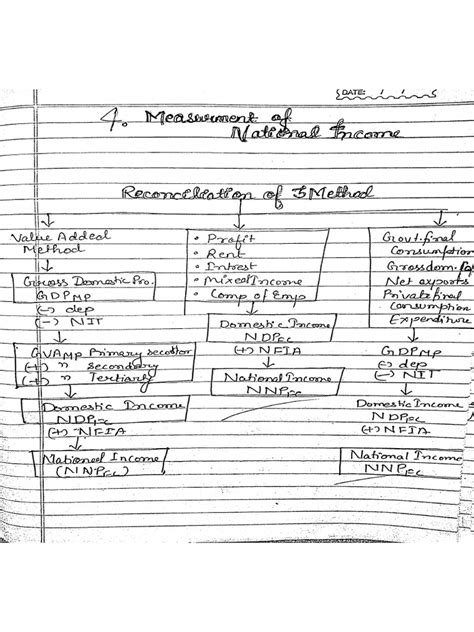 DATE: / /
4. Measurment of
National Income
Reconciliation of 3 Method
Value Added
Method
Gross Domestic Pro.
GDPMP
(-) dep
(-) NIT
GVAMP Primary secottor
(+) " secondary
(+) " Tertiary
Domestic Income
NDPFC
(+) NFIA
National Income
(NNPFC)
• Profit
• Rent
• Intrest
• Mixed Income
• Comp of Emp
Domestic Income
NDPFC
(+) NFIA
National Income
NNPFC
Govt. final
Consumption
Gross dom.
Net exports
Private final
consumption
Expenditure
GDPMP
(-) dep
(-) NIT
Domestic Income
NDPFC
(+) NFIA
National Income
NNPFC